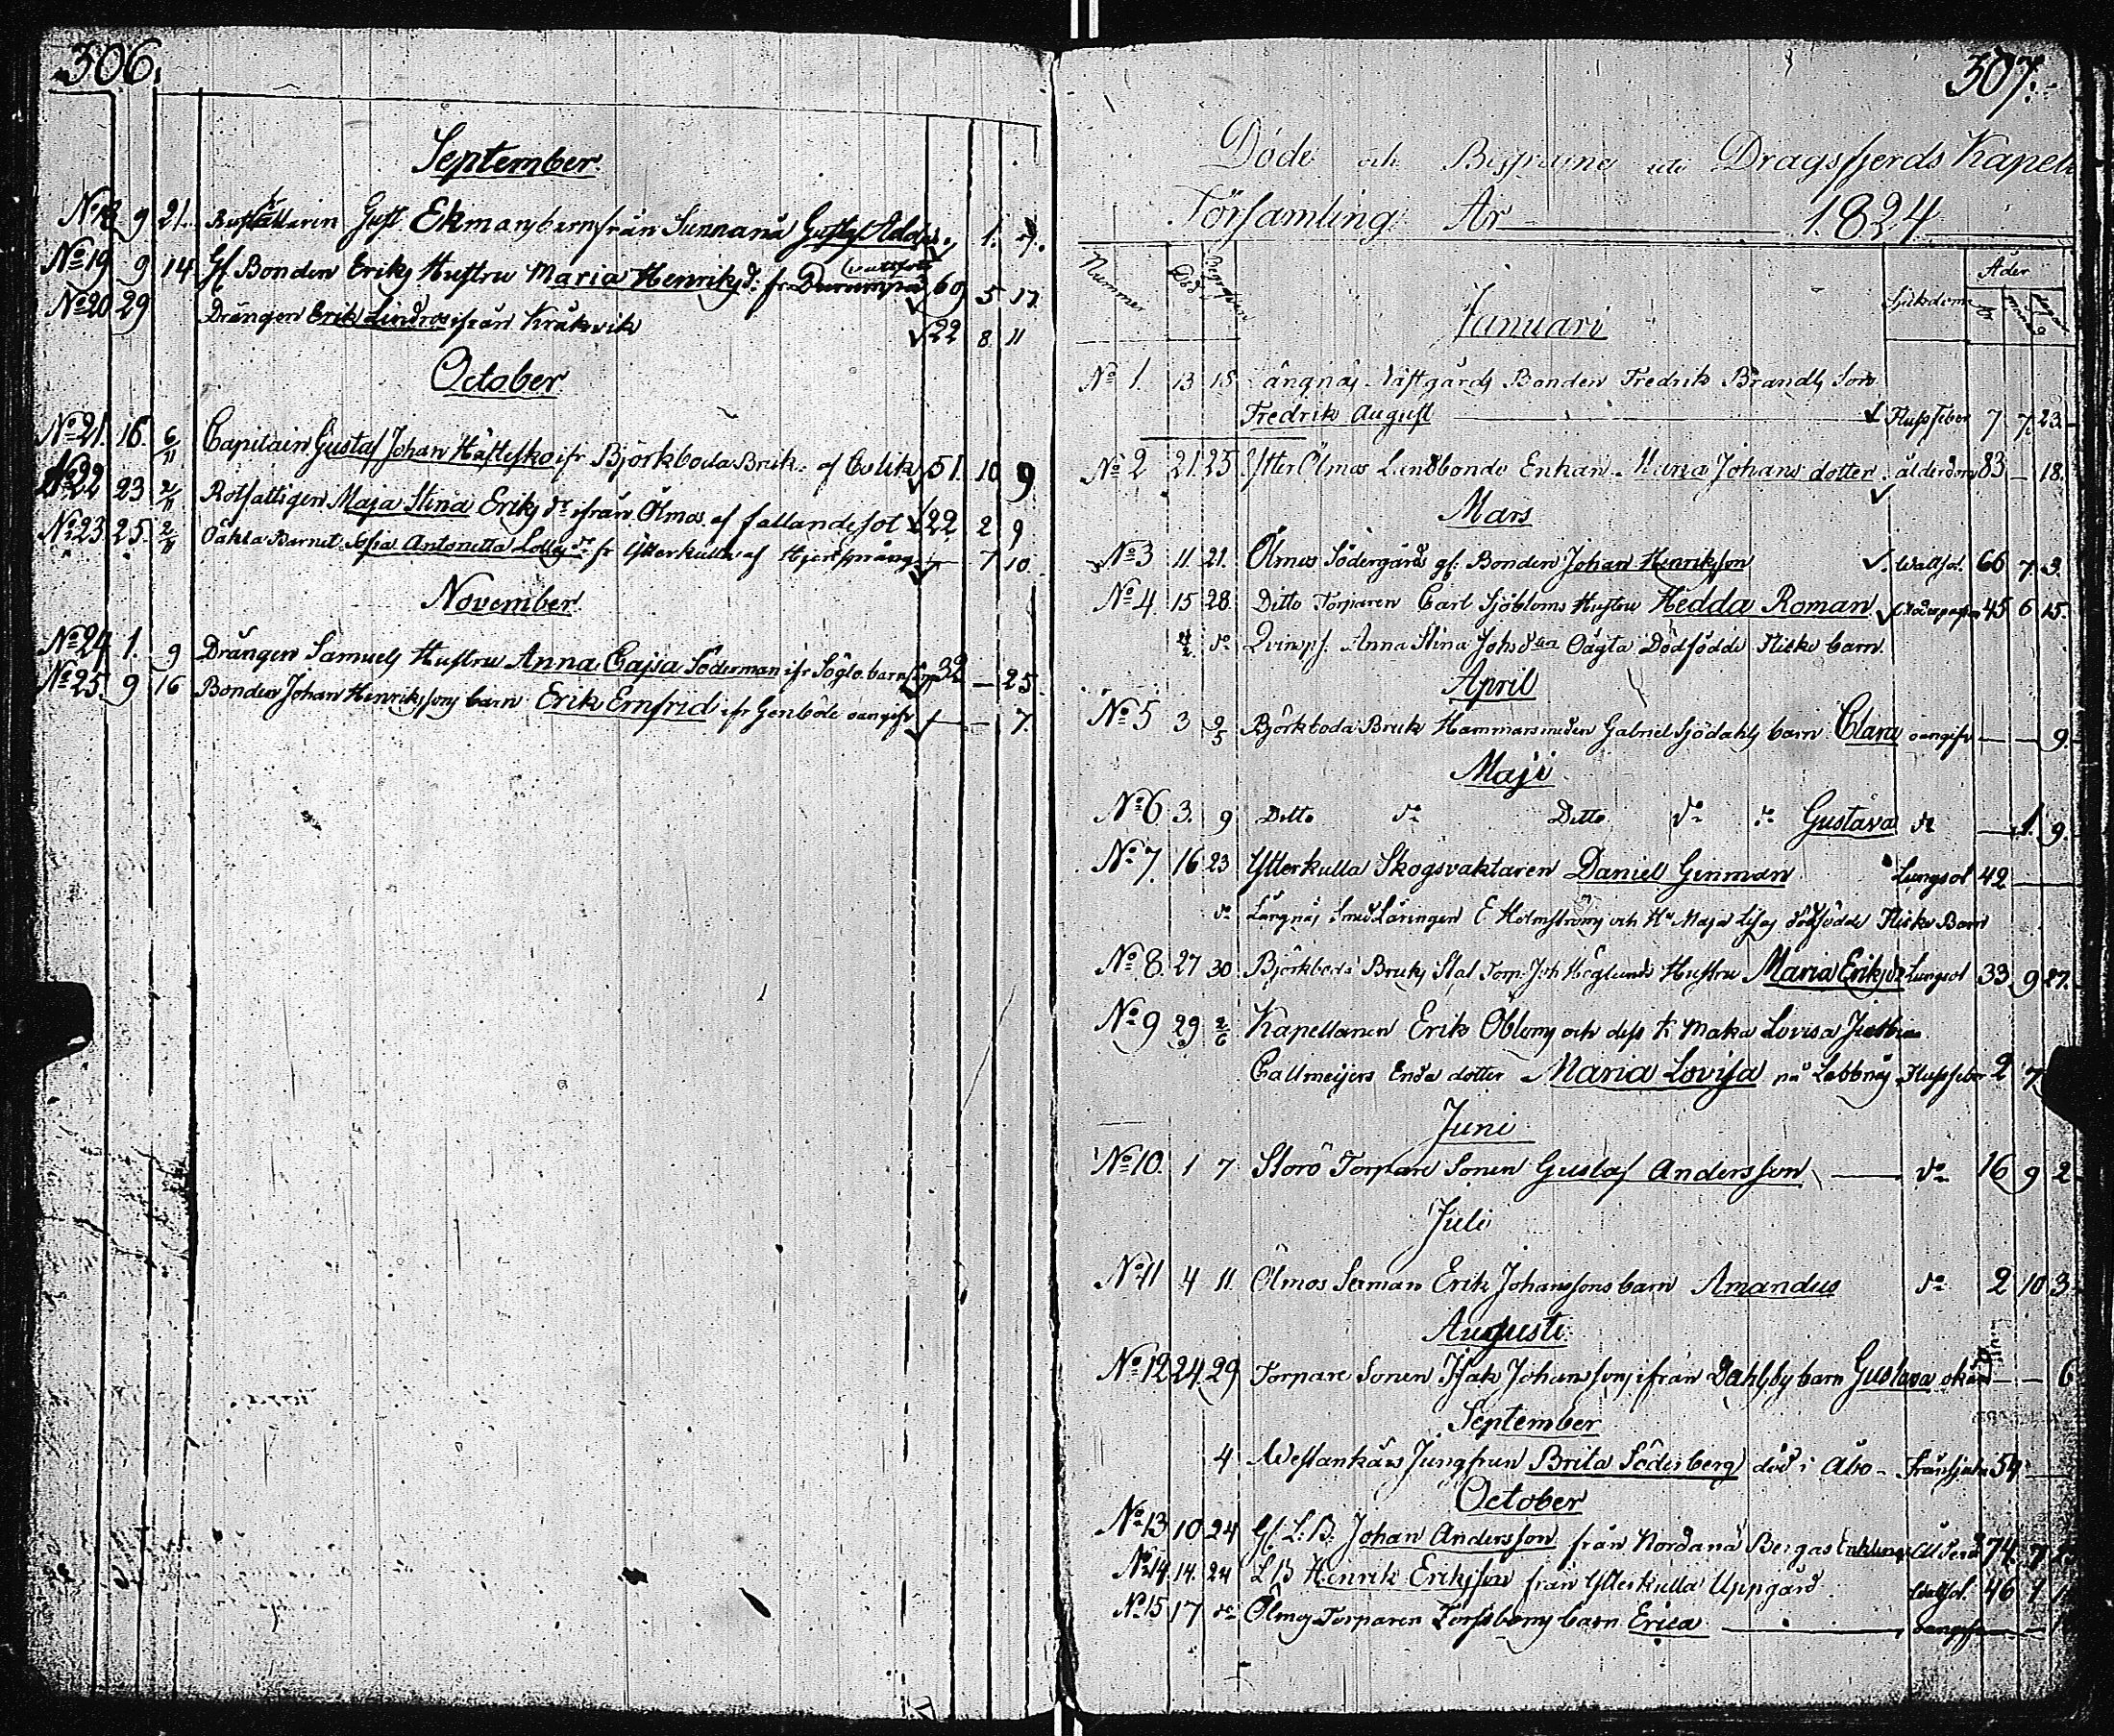 306.
September.
No 18 9 21. Gust Ekmans barn från Sunnanå Gustaf Adolph 1.
No 19 9 14 Gl. Bonden Eriks Hustru Maria Henriksdr fr. (vattsot) 69 5 17.
No 20 29 Drängen Erik Lindros ifrån Kråkvik 22 8 11
October
No 21. 16. 6/11 Capitain Gustaf Johan Hästesko ifr Björkboda Bruk. af Colik 51. 10 9
No 22 23 2/11 Rotfattigen Maja Stina Eriks dr ifrån Ölmos. af fallandesot 22 2 9
No 23 25. 2/11 Oäkta Barnet Sofia Antonetta fr Ytterkulla af Hjertsprång — 7 10
November.
No 24 1. 9 Drängen Samuels Hustru Anna Cajsa Söderman ifr Söglo. barns. 32 — 25
No 25. 9 16 Bonden Johan Henrikssons barn Erik Ernfrid ifr Genböle oangifv — — 7.
307.
Döde och Begrafne uti Dragsfjerds Kapell
Församling År 1824
Nummer Död Begrafven Sjukdom Ålder
Januari
No 1. 13 15 Långnäs Västgårds Bonden Fredrik Brands Son
Fredrik August Flussfeber 7 7 23.
No 2 21. 25 Ytter Ölmos Landbonde Enkan Maria Johans dotter. ålderdom 83 — 18.
Mars
No 3 11. 21. Ölmos Södergårds gl. Bonden Johan Henriksson Wattsot. 66 7 3.
No 4. 15 28. Ditto Torparen Carl Sjöbloms Hustru Hedda Roman 45 6 15.
do Qvinsp. Anna Stina Johs dtrs Oägta Dödfödde Flicke barn.
April
No 5 3 9/5 Björkboda Bruk Hammarsmeden Gabriel Sjödahls barn Clara oangifv — — 9.
Maji
No 6 3. 9 Ditto do Ditto do do Gustava do — 1. 9.
No 7. 16 23 Ytterkulla Skogsvaktaren Daniel Ginman Lungsot 42
do Långnäs Smed Läringen E Holmströms och Hu Maja Lisas dödfödde Flicke Barn
No 8. 27 30 Björkboda Bruks Stat Torp. Joh Höglunds Hustru Maria Eriksdr Lungsot 33 9 27.
No 9 29 2/6 Kapellanen Erik Öbloms och dess k. Maka Lovisa
Callmeijers Enda dotter Maria Lovisa på Labbnäs Flussfeber 2 7
Juni
No 10. 1 7 Storö Torpare Sonen Gustaf Andersson do 16 9 2
Juli
No 11 4 11. Ölmos Serman Erik Johanssons barn Amandus do 2 10 3
Augusti.
No 12 24 29 Torpare Sonen Isak Johanssons ifrån Dahlsby barn Gustava okänd — — 6
September
4 Westankärs Jungfrun Brita Söderberg död i Åbo — 54
October
No 13 10 24 Gl. L. B. Johan Andersson från Nordanå Bergas Enkling Ålderd 74 7
No 14. 14. 24 L B Henrik Eriksson från Ytterkulla Uppgård Wattsot. 46 1
No 15 17 do Ölmos Torparen barn Erica oangifv